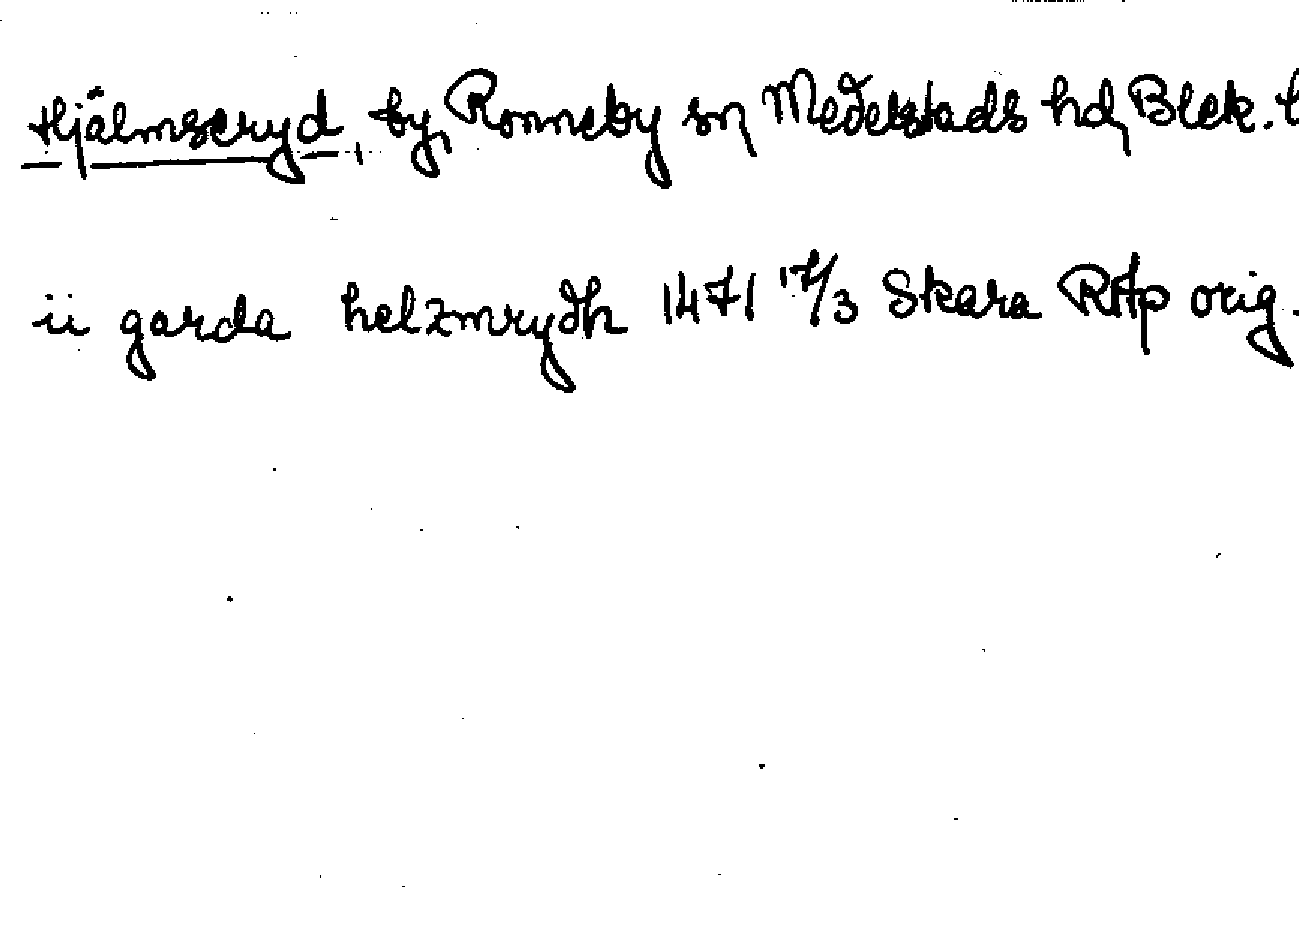 Hjälmseryd, by, Ronneby sn, Medelstads hd, Blek. l
ii garda helzmrydh 1471 17/3 Skara RAp orig.